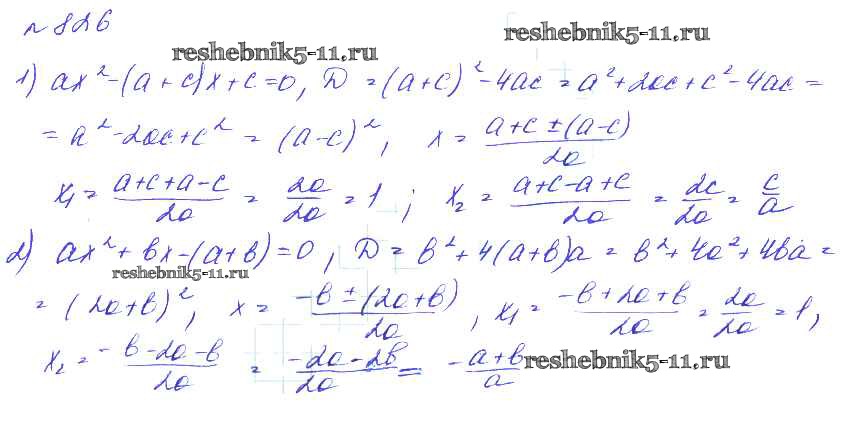 № 826
reshebnik5-11.ru reshebnik5-11.ru
1) ax² - (a + c)x + c = 0, D = (a+c)² - 4ac = a² + 2ac + c² - 4ac =
= a² - 2ac + c² = (a - c)², x = (a + c ± (a - c))/2a
x₁ = (a+c+a-c)/2a = 2a/2a = 1 ; x₂ = (a+c-a+c)/2a = 2c/2a = c/a
2) ax² + bx - (a + b) = 0, D = b² + 4(a+b)a = b² + 4a² + 4ba =
reshebnik5-11.ru
= (2a+b)², x = (-b ± (2a+b))/2a, x₁ = (-b + 2a + b)/2a = 2a/2a = 1,
x₂ = (-b - 2a - b)/2a = (-2a - 2b)/2a = -(a + b)/a reshebnik5-11.ru